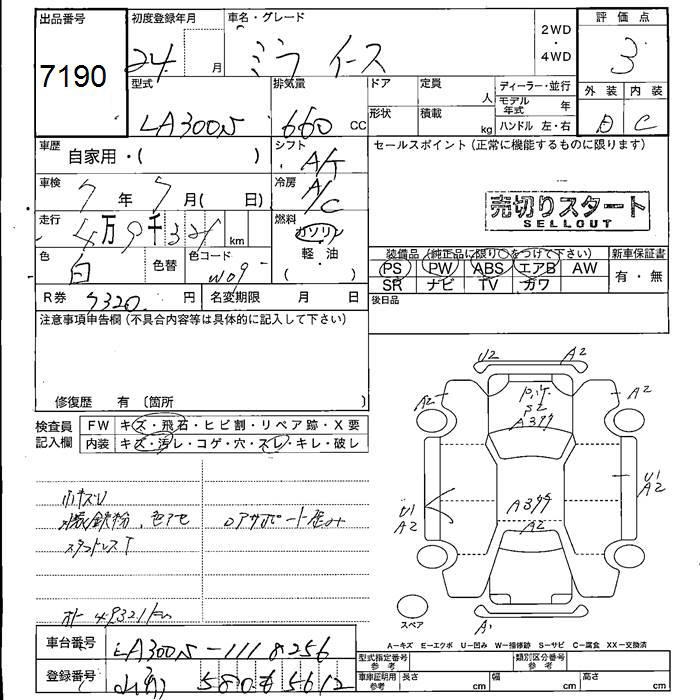 出品番号 初度登録年月 車名・グレード 2WD ・ 4WD 評価点
7190 24年 月 ミライース 3
型式 排気量 ドア 定員 人 ディーラー・並行 外装 内装
LA300S 660 CC 形状 積載 kg モデル年式 年 C
ハンドル 左・右
車歴 自家用・( ) シフト A/T セールスポイント(正常に機能するものに限ります)
車検 7年 5月( 日) 冷房 A/C
売切りスタート
SELLOUT
走行 4万9千321 km 燃料 ガソリン 軽・油 ( )
色 白 色替 色コード W09
装備品(純正品に限り○をつけて下さい) 新車保証書
PS PW ABS エアB AW 有・無
SR ナビ TV カワ
R券 円 名変期限 月 日 後日品
注意事項申告欄(不具合内容等は具体的に記入して下さい)
修復歴 有 〔箇所 〕
検査員記入欄 FW キズ・飛石・ヒビ割・リペア跡・X要
内装 キズ・汚レ・コゲ・穴・スレ・キレ・破レ
U2 A2
A2 A2
A2
U1 A2
U1 A2
A2
A1
小キズU
スタッドレスT
スペア
A−キズ E−エクボ U−凹み W−補修跡 S−サビ C−腐食 XX−交換済
車台番号 LA300S-1118256
型式指定番号 参考 類別区分番号 参考
登録番号 580 5612
車庫証明用 参考 長さ cm 幅 cm 高さ cm